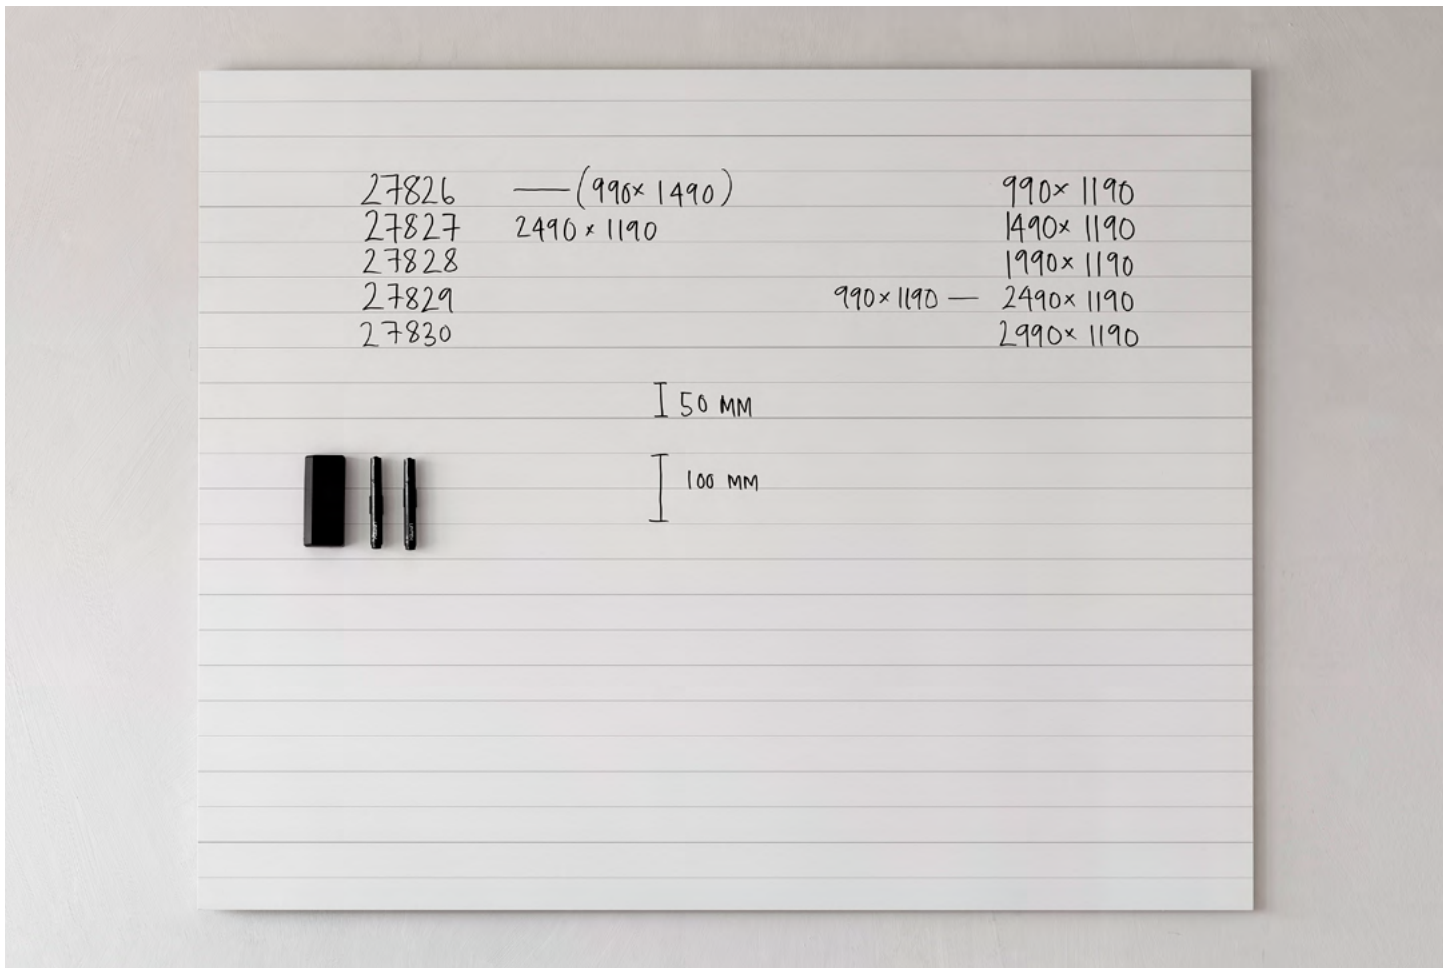 27826 —(990× 1490) 990× 1190
27827 2490 × 1190 1490× 1190
27828 1990× 1190
27829 990×1190 — 2490× 1190
27830 2990× 1190
50 MM
100 MM